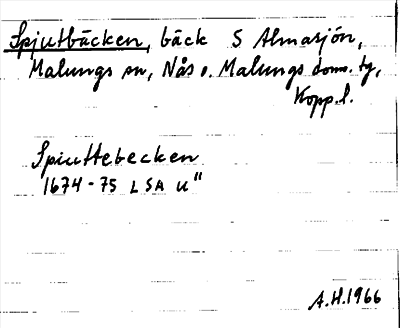 Spjutbäcken, bäck S Almasjön,
Malungs sn, Nås o. Malungs doms. tg,
Kopp. l.
Spiuttebecken
1674-75 LSA U"
A.H. 1966